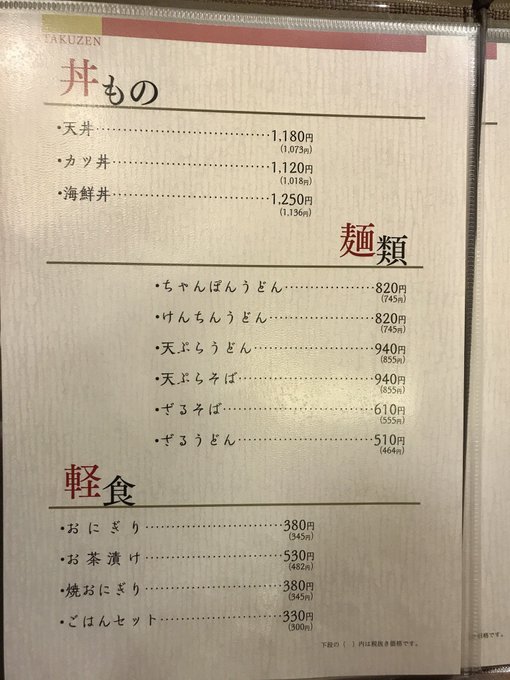 TAKUZEN
丼もの
・天丼……………………………1,180円
(1,073円)
・カツ丼…………………………1,120円
(1,018円)
・海鮮丼…………………………1,250円
(1,136円)
麺類
・ちゃんぽんうどん………………820円
(745円)
・けんちんうどん…………………820円
(745円)
・天ぷらうどん……………………940円
(855円)
・天ぷらそば………………………940円
(855円)
・ざるそば…………………………610円
(555円)
・ざるうどん………………………510円
(464円)
軽食
・おにぎり…………………………380円
(345円)
・お茶漬け…………………………530円
(482円)
・焼おにぎり………………………380円
(345円)
・ごはんセット……………………330円
(300円)
下段の（　）内は税抜き価格です。